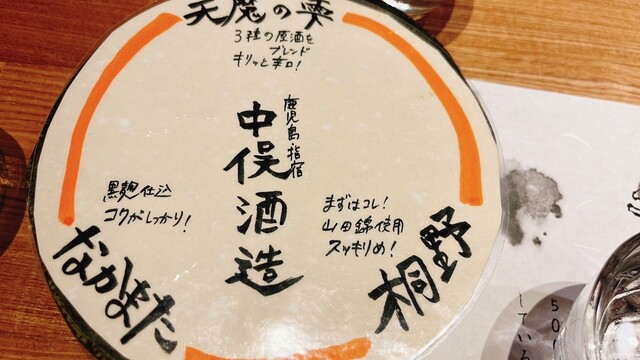 天魔の雫
3種の原酒を
ブレンド
キリッと辛口!
鹿児島指宿
中俣酒造
黒麹仕込
コクがしっかり!
なかまた
まずはコレ!
山田錦使用
スッキリめ!
桐野
している